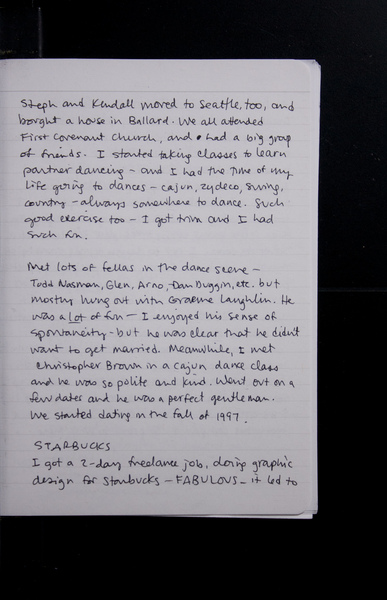 Steph and Kendall moved to Seattle, too, and
bought a house in Ballard. We all attended
First Covenant Church, and had a big group
of friends. I started taking classes to learn
partner dancing - and I had the time of my
life going to dances - cajun, zydeco, swing,
country - always somewhere to dance. Such
good exercise too - I got trim and I had
such fun.
Met lots of fellas in the dance scene -
Todd Nasman, Glen, Arno, Dan Duggin, etc. but
mostly hung out with Graeme Laughlin. He
was a lot of fun - I enjoyed his sense of
spontaneity - but he was clear that he didn't
want to get married. Meanwhile, I met
Christopher Brown in a cajun dance class
and he was so polite and kind. Went out on a
few dates and he was a perfect gentleman.
We started dating in the fall of 1997.
STARBUCKS
I got a 2-day freelance job, doing graphic
design for Starbucks - FABULOUS - it led to